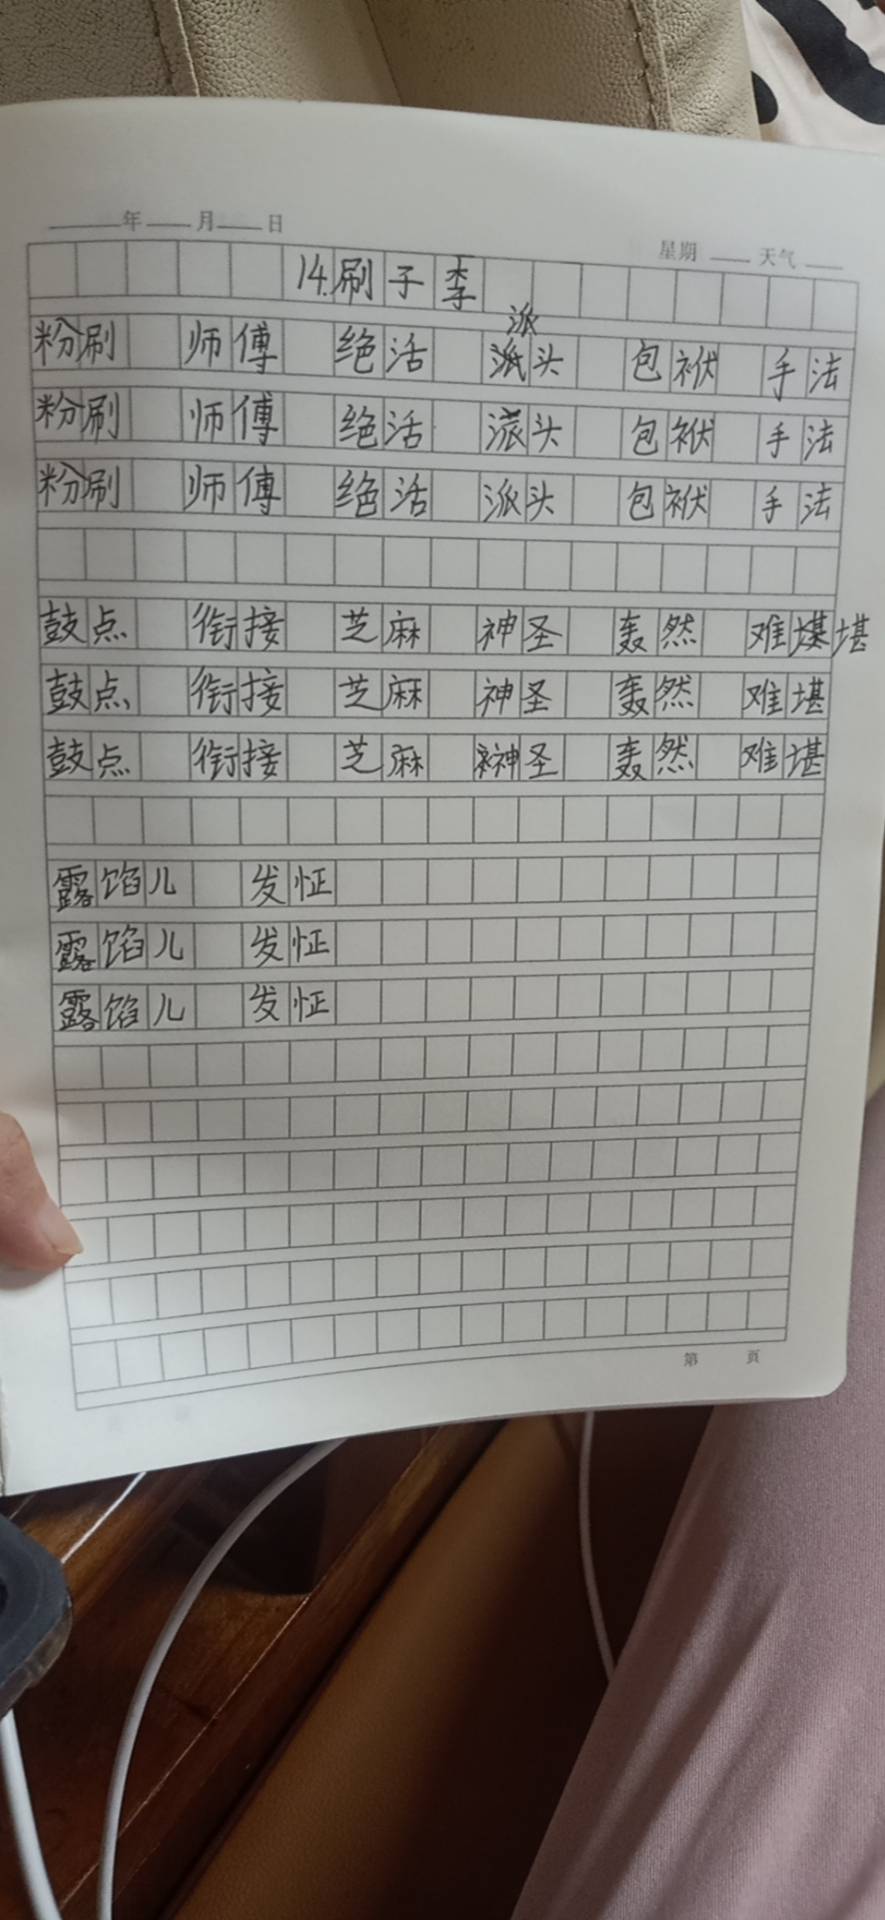 年 月 日
星期 天气
14.刷子李
派
粉刷 师傅 绝活 头 包袱 手法
粉刷 师傅 绝活 派头 包袱 手法
粉刷 师傅 绝活 派头 包袱 手法
鼓点 衔接 芝麻 神圣 轰然 难堪
鼓点 衔接 芝麻 神圣 轰然 难堪
鼓点 衔接 芝麻 神圣 轰然 难堪
露馅儿 发怔
露馅儿 发怔
露馅儿 发怔
第 页